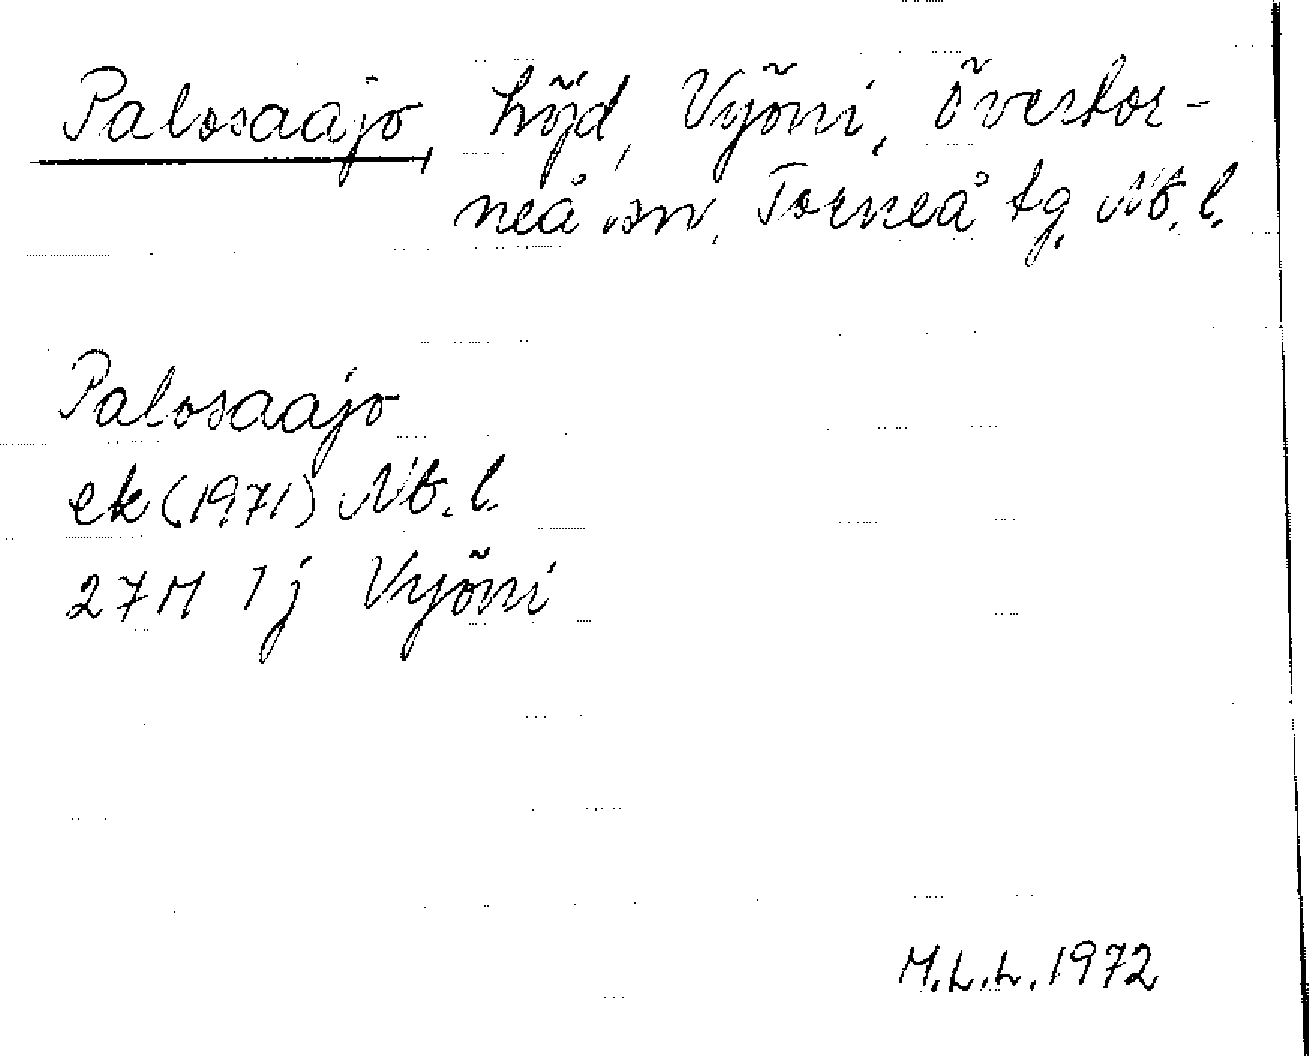 Palosaajo, höjd, Vyöni, Övertor-
neå sn, Torneå tg. Nb. l.
Palosaajo
ek (1971) Nb. l.
27M 7j Vyöni
M.L.L. 1972